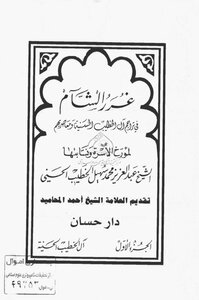 غرر الشآم
في تراجم آل الخطيب الحسنية ومعاصريهم
لمؤرخ الأسرة ونسابتها
الشيخ عبد العزيز محمد سهيل الخطيب الحسني
تقديم العلامة الشيخ أحمد المحاميد
دار حسان
الجزء الأول
آل الخطيب الحسنية
اموال